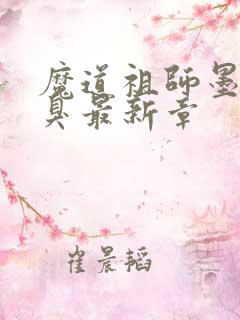 魔道祖师墨
臭最新章
崔晨韬